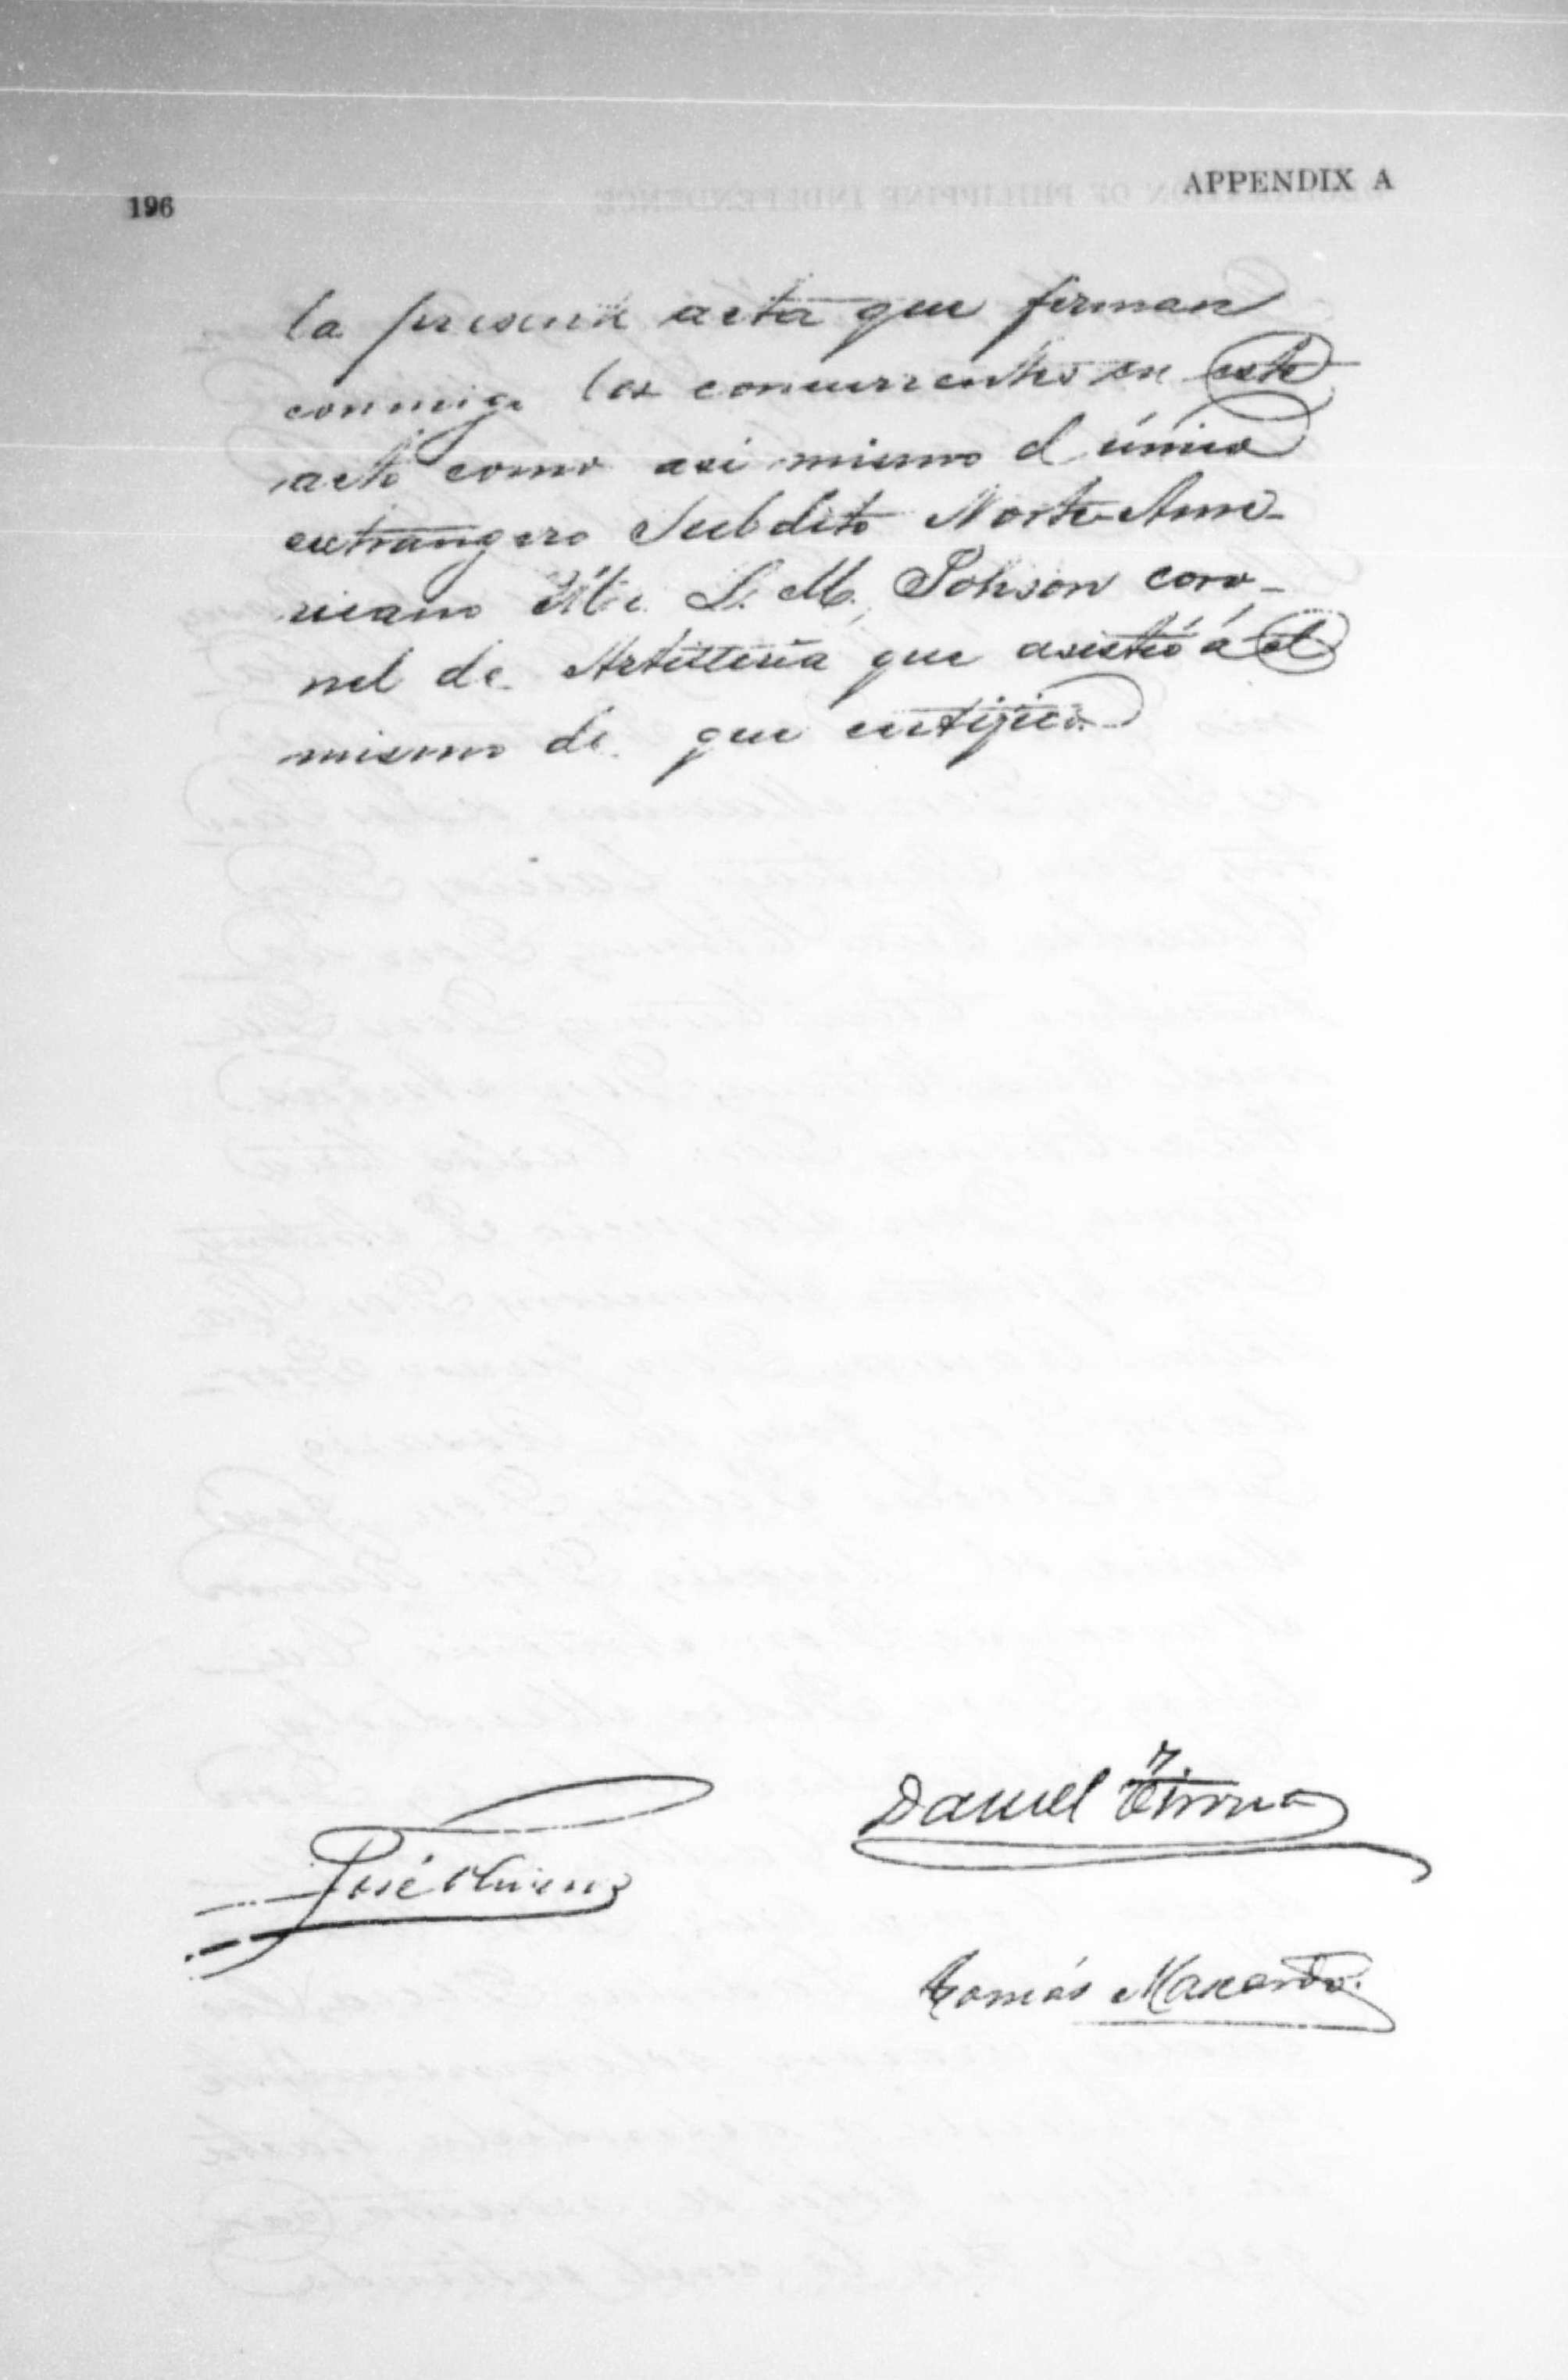 196
APPENDIX A
la presente acta que firman
conmigo los concurrentes en este
acto como asi mismo el único
extrangero Subdito Norte-Ame-
ricano Mr. L. M. Johnson coro-
nel de Artilleria que asistió á el
mismo de que certifico.
Daniel Tirona
José
Tomás Mascardo.